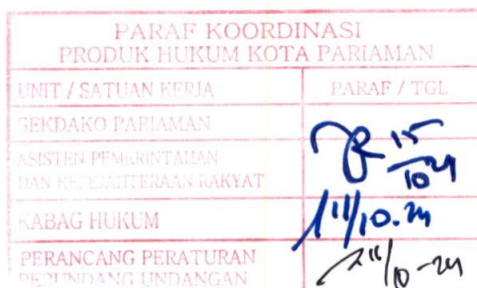 PARAF KOORDINASI
PRODUK HUKUM KOTA PARIAMAN
UNIT / SATUAN KERJA PARAF / TGL
SEKDAKO PARIAMAN
ASISTEN PEMERINTAHAN
DAN KESEJAHTERAAN RAKYAT
15
10 24
KABAG HUKUM
11/10.24
PERANCANG PERATURAN
PERUNDANG UNDANGAN
11/10-24